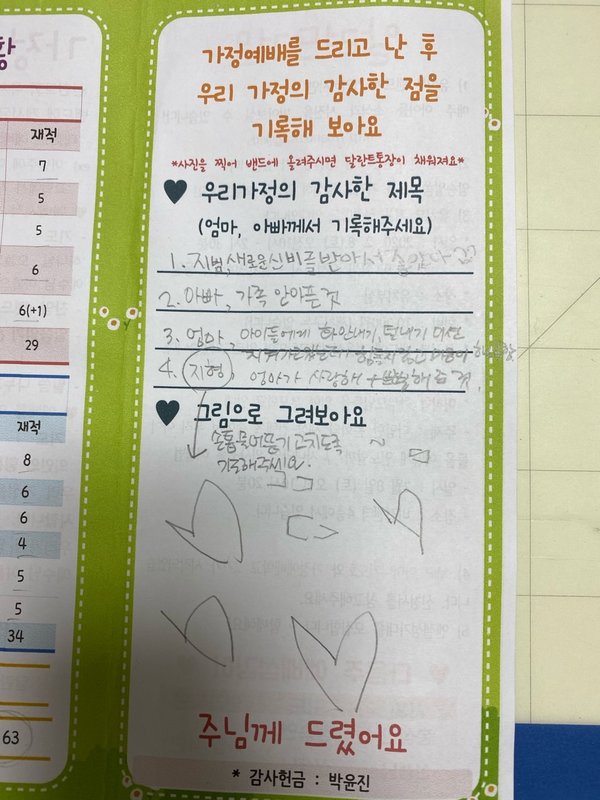 황
재적
7
5
5
6
6(+1)
29
재적
8
6
6
4
5
5
34
63
가정예배를 드리고 난 후
우리 가정의 감사한 점을
기록해 보아요
*사진을 찍어 밴드에 올려주시면 달란트통장이 채워져요*
♥ 우리가정의 감사한 제목
(엄마, 아빠께서 기록해주세요)
1. 지범, 새로운 신비를 받아서
2. 아빠, 가족 안아픈 것
3. 엄마, 아이들에게 화안내기, 덜내기 미션
4. 지형, 엄마가 사랑해 + 해준 것.
♥ 그림으로 그려보아요
손톱물어뜯기 고치도록
기도해주세요.
주님께 드렸어요
* 감사헌금 : 박윤진